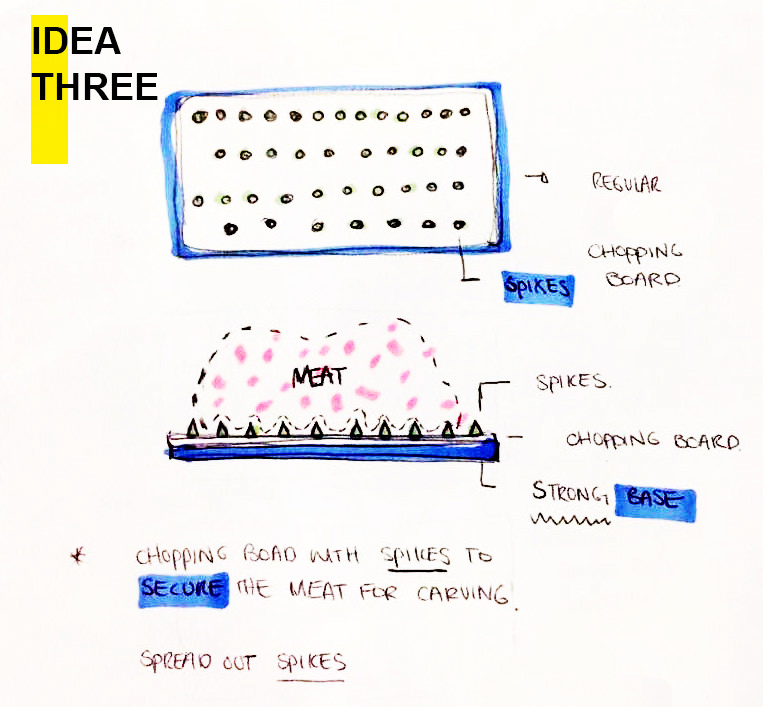 IDEA
THREE
REGULAR
CHOPPING
BOARD
SPIKES
MEAT
SPIKES.
CHOPPING BOARD.
STRONG, BASE
* CHOPPING BOAD WITH SPIKES TO
SECURE THE MEAT FOR CARVING.
SPREAD OUT SPIKES